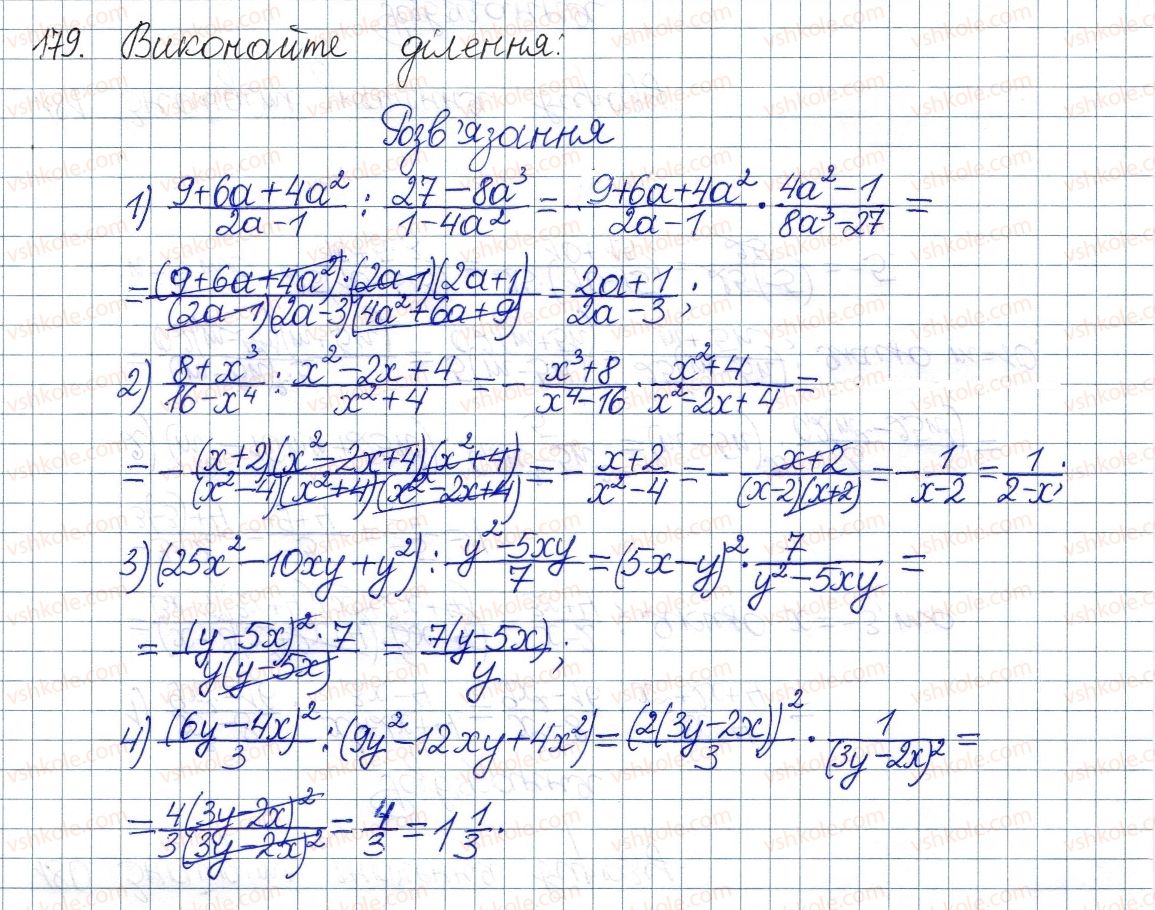 179. Виконайте ділення:
Розв'язання
1) (9+6a+4a²)/(2a-1) : (27-8a³)/(1-4a²) = (9+6a+4a²)/(2a-1) · (4a²-1)/(8a³-27) =
= ((9+6a+4a²)·(2a-1)(2a+1))/((2a-1)(2a-3)(4a²+6a+9)) = (2a+1)/(2a-3);
2) (8+x³)/(16-x⁴) : (x²-2x+4)/(x²+4) = - (x³+8)/(x⁴-16) · (x²+4)/(x²-2x+4) =
= - ((x+2)(x²-2x+4)(x²+4))/((x²-4)(x²+4)(x²-2x+4)) = - (x+2)/(x²-4) = - (x+2)/((x-2)(x+2)) = - 1/(x-2) = 1/(2-x);
3) (25x²-10xy+y²) : (y²-5xy)/7 = (5x-y)² · 7/(y²-5xy) =
= ((y-5x)²·7)/(y(y-5x)) = (7(y-5x))/y;
4) (6y-4x)²/3 : (9y²-12xy+4x²) = (2(3y-2x))²/3 · 1/(3y-2x)² =
= (4(3y-2x)²)/(3(3y-2x)²) = 4/3 = 1 1/3.